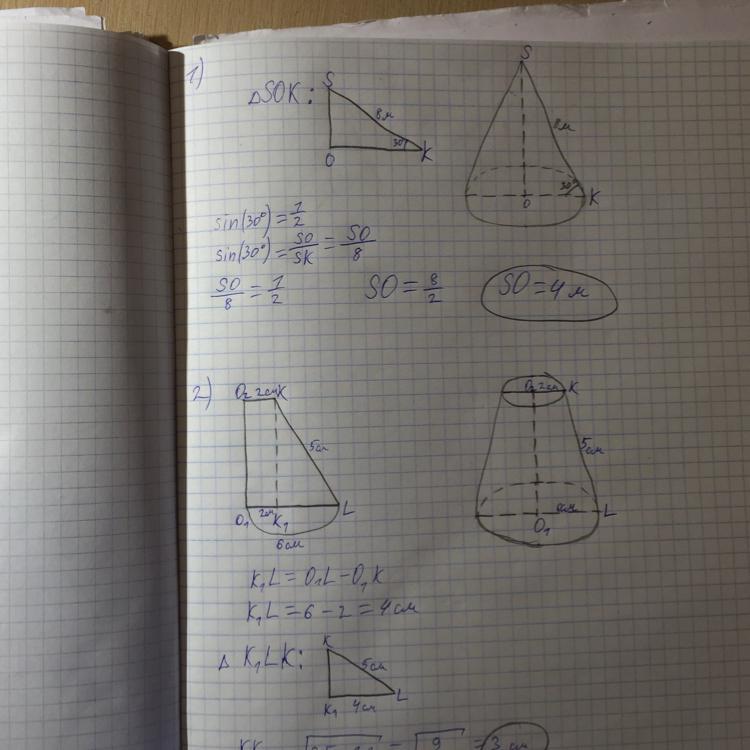 1)
ΔSOK:
S
8м
30°
O
K
S
8м
30°
O
K
sin(30°) = 1/2
sin(30°) = SO/SK = SO/8
SO/8 = 1/2
SO = 8/2
SO = 4 м
2)
O₂ 2см K
5см
O₁ 2см K₁ L
6см
O₂ 2см K
5см
L
O₁
K₁L = O₁L – O₁K
K₁L = 6 – 2 = 4 см
Δ K₁LK:
K
5см
L
K₁ 4см
= √9 = 3 см